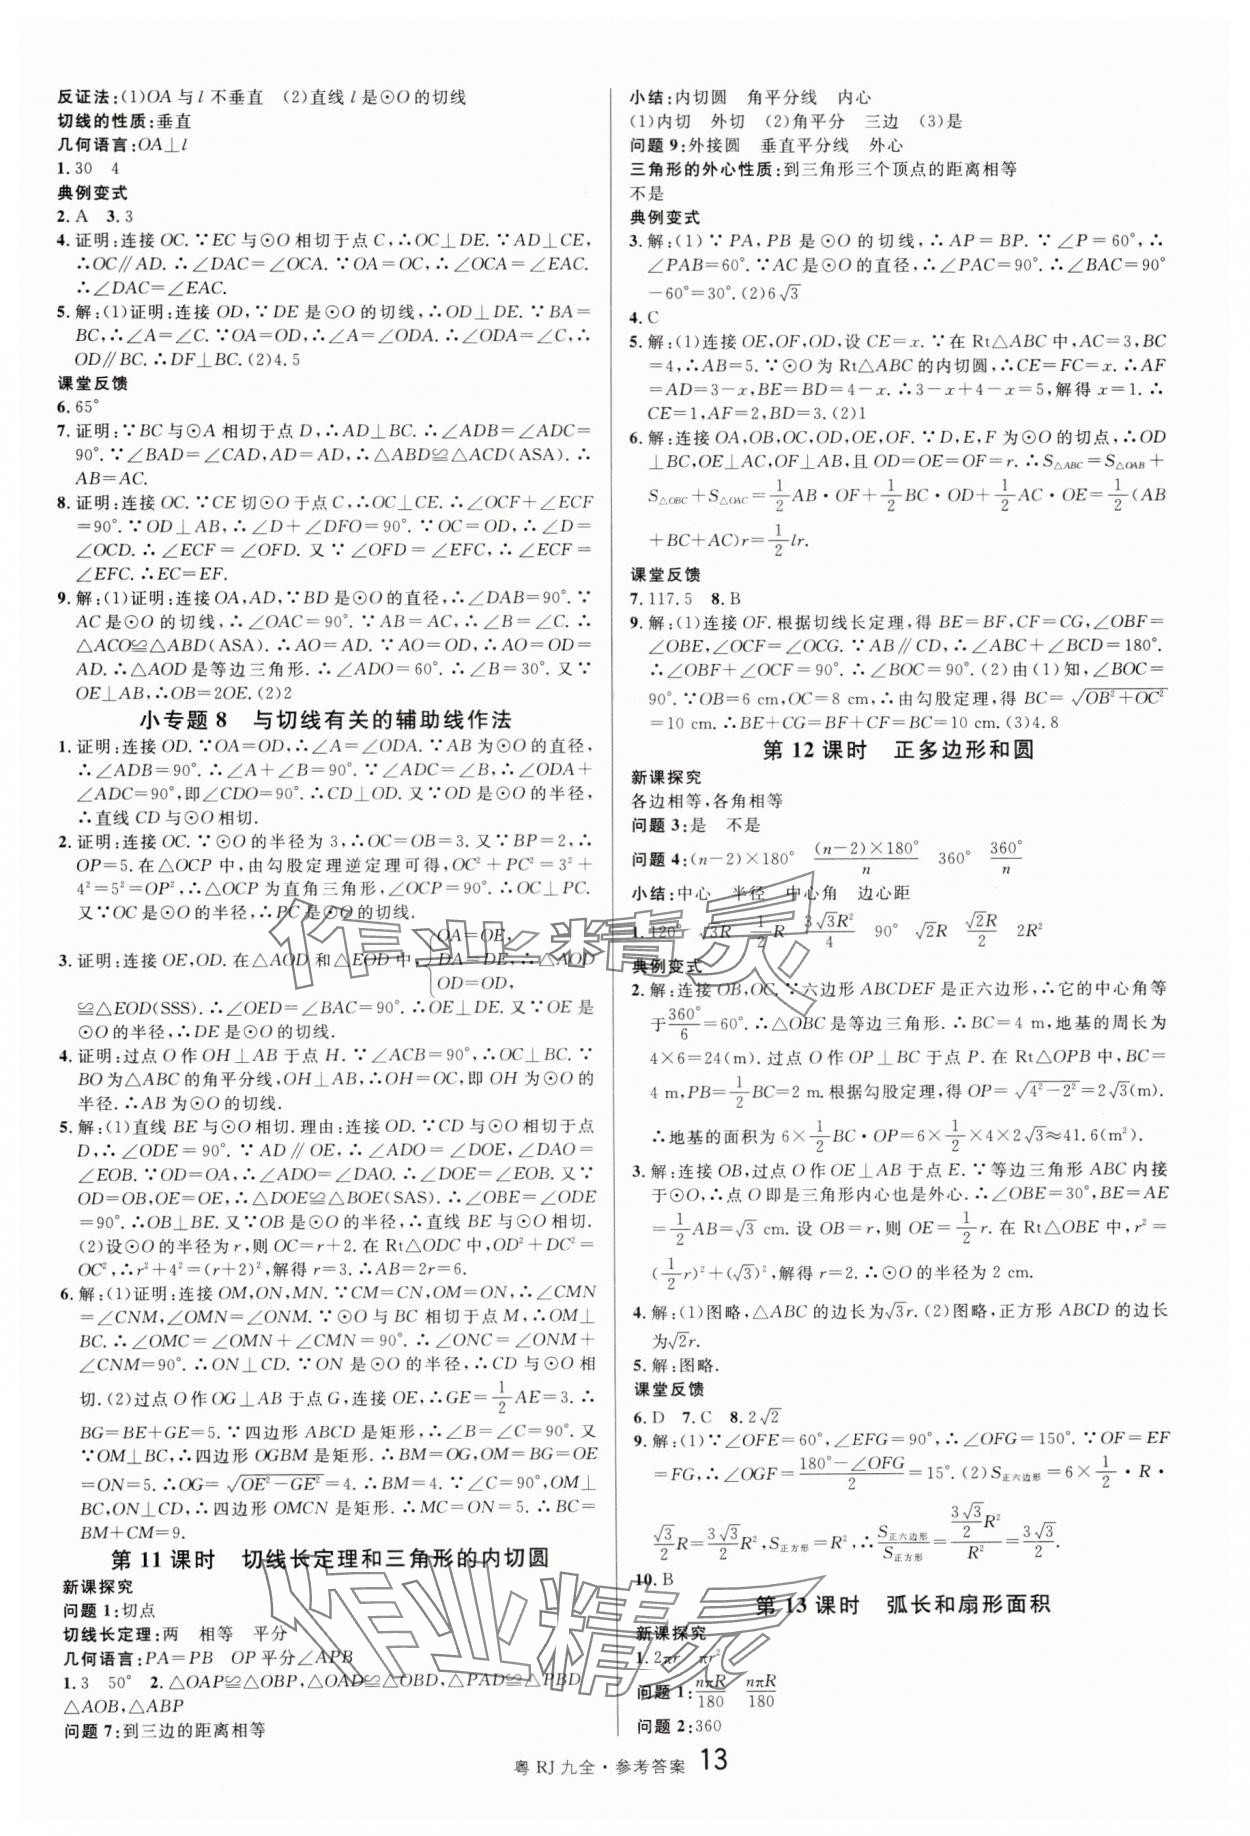 反证法:(1)OA与l不垂直　(2)直线l是⊙O的切线
切线的性质:垂直
几何语言:OA⊥l
1.30　4
典例变式
2.A　3.3
4.证明:连接OC.∵EC与⊙O相切于点C,∴OC⊥DE.∵AD⊥CE,
∴OC∥AD.∴∠DAC=∠OCA.∵OA=OC,∴∠OCA=∠EAC.
∴∠DAC=∠EAC.
5.解:(1)证明:连接OD,∵DE是⊙O的切线,∴OD⊥DE.∵BA=
BC,∴∠A=∠C.∵OA=OD,∴∠A=∠ODA.∴∠ODA=∠C,∴
OD∥BC.∴DF⊥BC.(2)4.5
课堂反馈
6.65°
7.证明:∵BC与⊙A相切于点D,∴AD⊥BC.∴∠ADB=∠ADC=
90°.∵∠BAD=∠CAD,AD=AD,∴△ABD≌△ACD(ASA).∴
AB=AC.
8.证明:连接OC.∵CE切⊙O于点C,∴OC⊥CE.∴∠OCF+∠ECF
=90°.∵OD⊥AB,∴∠D+∠DFO=90°.∵OC=OD,∴∠D=
∠OCD.∴∠ECF=∠OFD.又∵∠OFD=∠EFC,∴∠ECF=
∠EFC.∴EC=EF.
9.解:(1)证明:连接OA,AD,∵BD是⊙O的直径,∴∠DAB=90°.∵
AC是⊙O的切线,∴∠OAC=90°.∵AB=AC,∴∠B=∠C.∴
△ACO≌△ABD(ASA).∴AO=AD.∵AO=OD,∴AO=OD=
AD.∴△AOD是等边三角形.∴∠ADO=60°.∴∠B=30°.又∵
OE⊥AB,∴OB=2OE.(2)2
小专题8　与切线有关的辅助线作法
1.证明:连接OD.∵OA=OD,∴∠A=∠ODA.∵AB为⊙O的直径,
∴∠ADB=90°.∴∠A+∠B=90°.∵∠ADC=∠B,∴∠ODA
+∠ADC=90°,即∠CDO=90°.∴CD⊥OD.∵OD是⊙O的半径,
∴直线CD与⊙O相切.
2.证明:连接OC.∵⊙O的半径为3,∴OC=OB=3.又∵BP=2,∴
OP=5.在△OCP中,由勾股定理逆定理可得,OC²+PC²=3²+
4²=5²=OP²,∴△OCP为直角三角形,∠OCP=90°.∴OC⊥PC.
又∵OC是⊙O的半径,∴PC是⊙O的切线.
3.证明:连接OE,OD.在△AOD和△EOD中,{OA=OE, DA=DE, OD=OD,∴△AOD
≌△EOD(SSS).∴∠OED=∠BAC=90°.∴OE⊥DE.又∵OE是
⊙O的半径,∴DE是⊙O的切线.
4.证明:过点O作OH⊥AB于点H.∵∠ACB=90°,∴OC⊥BC.∵
BO为△ABC的角平分线,OH⊥AB,∴OH=OC,即OH为⊙O的
半径.∴AB为⊙O的切线.
5.解:(1)直线BE与⊙O相切.理由:连接OD.∵CD与⊙O相切于点
D,∴∠ODE=90°.∵AD∥OE,∴∠ADO=∠DOE,∠DAO=
∠EOB.∵OD=OA,∴∠ADO=∠DAO.∴∠DOE=∠EOB.又∵
OD=OB,OE=OE,∴△DOE≌△BOE(SAS).∴∠OBE=∠ODE
=90°.∴OB⊥BE.又∵OB是⊙O的半径,∴直线BE与⊙O相切.
(2)设⊙O的半径为r,则OC=r+2.在Rt△ODC中,OD²+DC²=
OC²,∴r²+4²=(r+2)²,解得r=3.∴AB=2r=6.
6.解:(1)证明:连接OM,ON,MN.∵CM=CN,OM=ON,∴∠CMN
=∠CNM,∠OMN=∠ONM.∵⊙O与BC相切于点M,∴OM⊥
BC.∴∠OMC=∠OMN+∠CMN=90°.∴∠ONC=∠ONM+
∠CNM=90°.∴ON⊥CD.∵ON是⊙O的半径,∴CD与⊙O相
切.(2)过点O作OG⊥AB于点G,连接OE,∴GE=1/2AE=3.∴
BG=BE+GE=5.∵四边形ABCD是矩形,∴∠B=∠C=90°.又
∵OM⊥BC,∴四边形OGBM是矩形.∴BM=OG,OM=BG=OE
=ON=5.∴OG=√(OE²-GE²)=4.∴BM=4.∵∠C=90°,OM⊥
BC,ON⊥CD,∴四边形OMCN是矩形.∴MC=ON=5.∴BC=
BM+CM=9.
第11课时　切线长定理和三角形的内切圆
新课探究
问题1:切点
切线长定理:两　相等　平分
几何语言:PA=PB　OP平分∠APB
1.3　50°　2.△OAP≌△OBP,△OAD≌△OBD,△PAD≌△PBD
△AOB,△ABP
问题7:到三边的距离相等
小结:内切圆　角平分线　内心
(1)内切　外切　(2)角平分　三边　(3)是
问题9:外接圆　垂直平分线　外心
三角形的外心性质:到三角形三个顶点的距离相等
不是
典例变式
3.解:(1)∵PA,PB是⊙O的切线,∴AP=BP.∵∠P=60°,∴
∠PAB=60°.∵AC是⊙O的直径,∴∠PAC=90°.∴∠BAC=90°
-60°=30°.(2)6√3
4.C
5.解:(1)连接OE,OF,OD,设CE=x.∵在Rt△ABC中,AC=3,BC
=4,∴AB=5.∵⊙O为Rt△ABC的内切圆,∴CE=FC=x.∴AF
=AD=3-x,BE=BD=4-x.∴3-x+4-x=5,解得x=1.∴
CE=1,AF=2,BD=3.(2)1
6.解:连接OA,OB,OC,OD,OE,OF.∵D,E,F为⊙O的切点,∴OD
⊥BC,OE⊥AC,OF⊥AB,且OD=OE=OF=r.∴S△ABC=S△OAB+
S△OBC+S△OAC=1/2AB·OF+1/2BC·OD+1/2AC·OE=1/2(AB
+BC+AC)r=1/2lr.
课堂反馈
7.117.5　8.B
9.解:(1)连接OF.根据切线长定理,得BE=BF,CF=CG,∠OBF=
∠OBE,∠OCF=∠OCG.∵AB∥CD,∴∠ABC+∠BCD=180°.
∴∠OBF+∠OCF=90°.∴∠BOC=90°.(2)由(1)知,∠BOC=
90°.∵OB=6 cm,OC=8 cm,∴由勾股定理,得BC=√(OB²+OC²)
=10 cm.∴BE+CG=BF+CF=BC=10 cm.(3)4.8
第12课时　正多边形和圆
新课探究
各边相等,各角相等
问题3:是　不是
问题4:(n-2)×180°　(n-2)×180°/n　360°　360°/n
小结:中心　半径　中心角　边心距
1.120°　√3R　1/2R　3√3R²/4　90°　√2R　√2R/2　2R²
典例变式
2.解:连接OB,OC.∵六边形ABCDEF是正六边形,∴它的中心角等
于360°/6=60°.∴△OBC是等边三角形.∴BC=4 m,地基的周长为
4×6=24(m).过点O作OP⊥BC于点P.在Rt△OPB中,OB=
4 m,PB=1/2BC=2 m.根据勾股定理,得OP=√(4²-2²)=2√3(m).
∴地基的面积为6×1/2BC·OP=6×1/2×4×2√3≈41.6(m²).
3.解:连接OB,过点O作OE⊥AB于点E.∵等边三角形ABC内接
于⊙O,∴点O即是三角形内心也是外心.∴∠OBE=30°,BE=AE
=1/2AB=√3 cm.设OB=r,则OE=1/2r.在Rt△OBE中,r²=
(1/2r)²+(√3)²,解得r=2.∴⊙O的半径为2 cm.
4.解:(1)图略,△ABC的边长为√3r.(2)图略,正方形ABCD的边长
为√2r.
5.解:图略.
课堂反馈
6.D　7.C　8.2√2
9.解:(1)∵∠OFE=60°,∠EFG=90°,∴∠OFG=150°.∵OF=EF
=FG,∴∠OGF=(180°-∠OFG)/2=15°.(2)S正六边形=6×1/2·R·
√3/2R=3√3/2R²,S正方形=R²,∴S正六边形/S正方形=(3√3/2R²)/R²=3√3/2.
10.B
第13课时　弧长和扇形面积
新课探究
1.2πr　πr²
问题1:nπR/180　nπR/180
问题2:360
粤RJ九全·参考答案　13
作业精灵
作业精灵